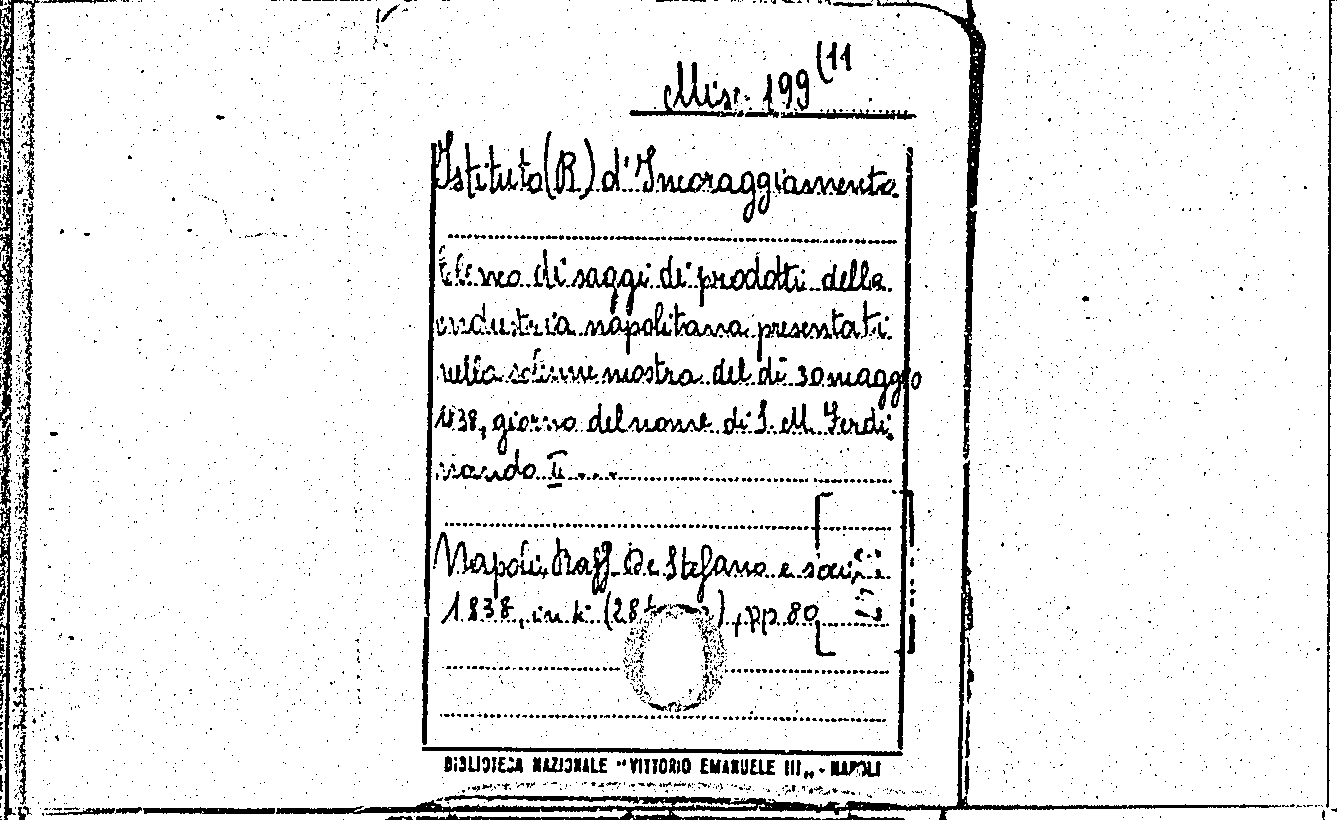 Misc. 199 (11
Istituto (R) d'Incoraggiamento
Elenco di saggi di prodotti della
industria napolitana presentati
nella solenne mostra del dì 30 maggio
1838, giorno del nome di S. M. Ferdi-
nando II...
Napoli, Raff. De Stefano e socii,
1838, in (28 ), pp. 80
BIBLIOTECA NAZIONALE "VITTORIO EMANUELE III„ - NAPOLI